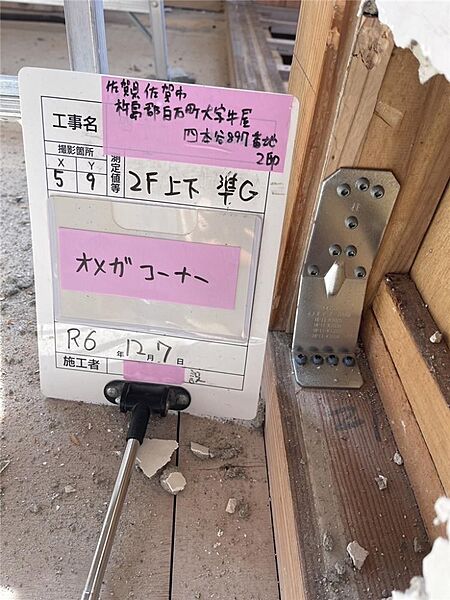 佐賀県佐賀市
杵島郡白石町大字牛屋
四本谷897番地
2邸
工事名
撮影箇所
X Y
測定値等
5 9
2F上下 準G
オメガコーナー
R6年12月7日
施工者
設